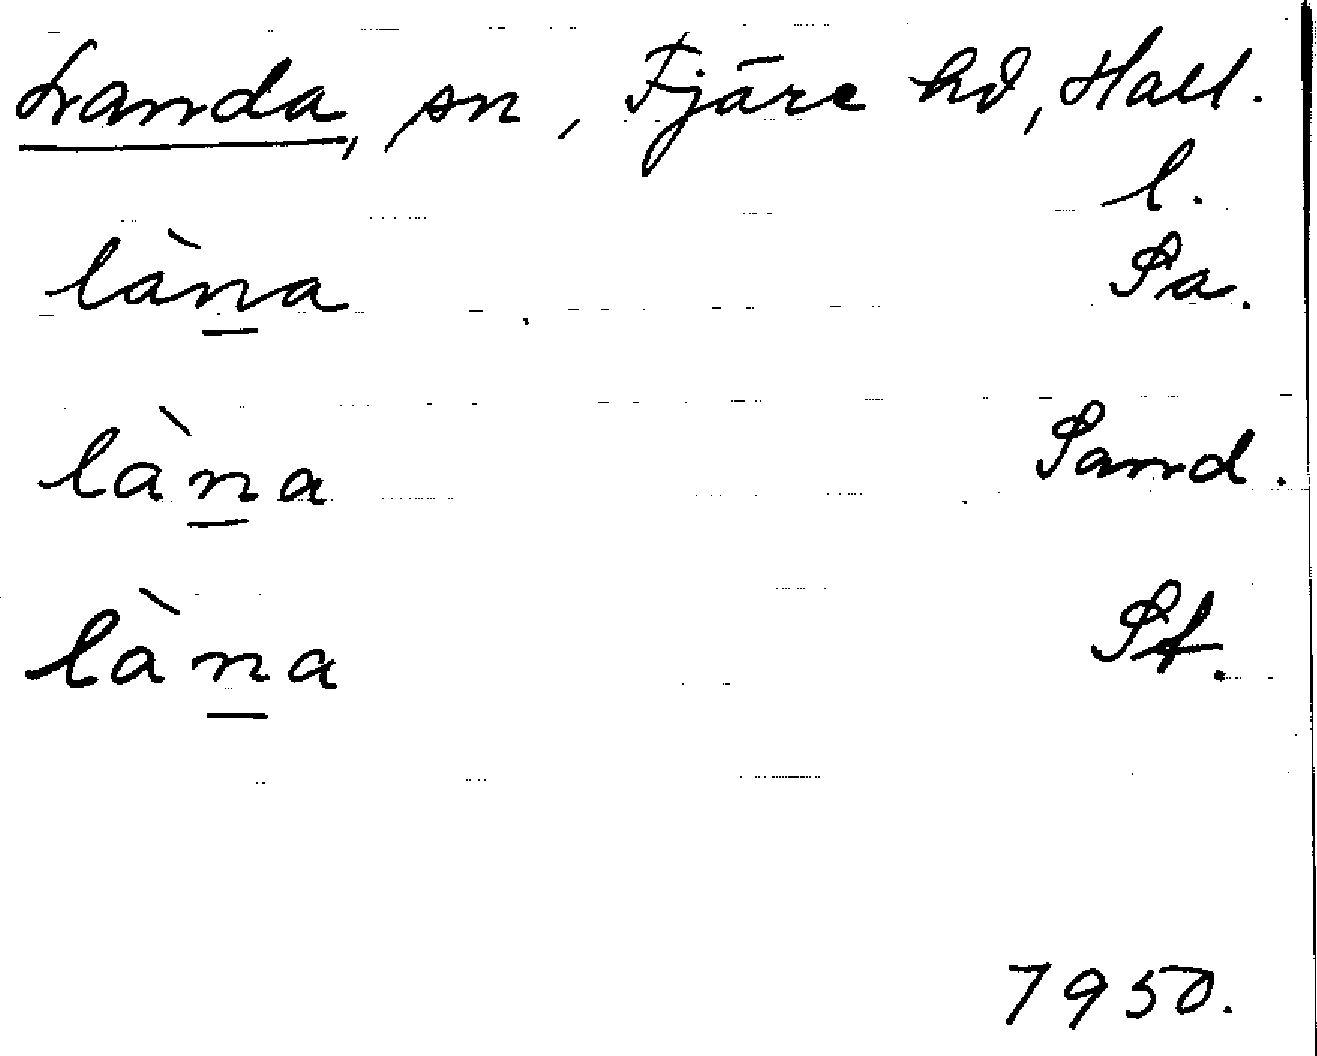 Landa, sn, Fjäre hd, Hall.
l.
làn̲a Sa.
làn̲a Sand.
làn̲a St.
1950.